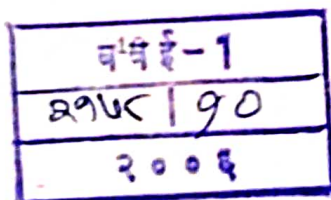 बबई-1
२१५८ | १०
२००६